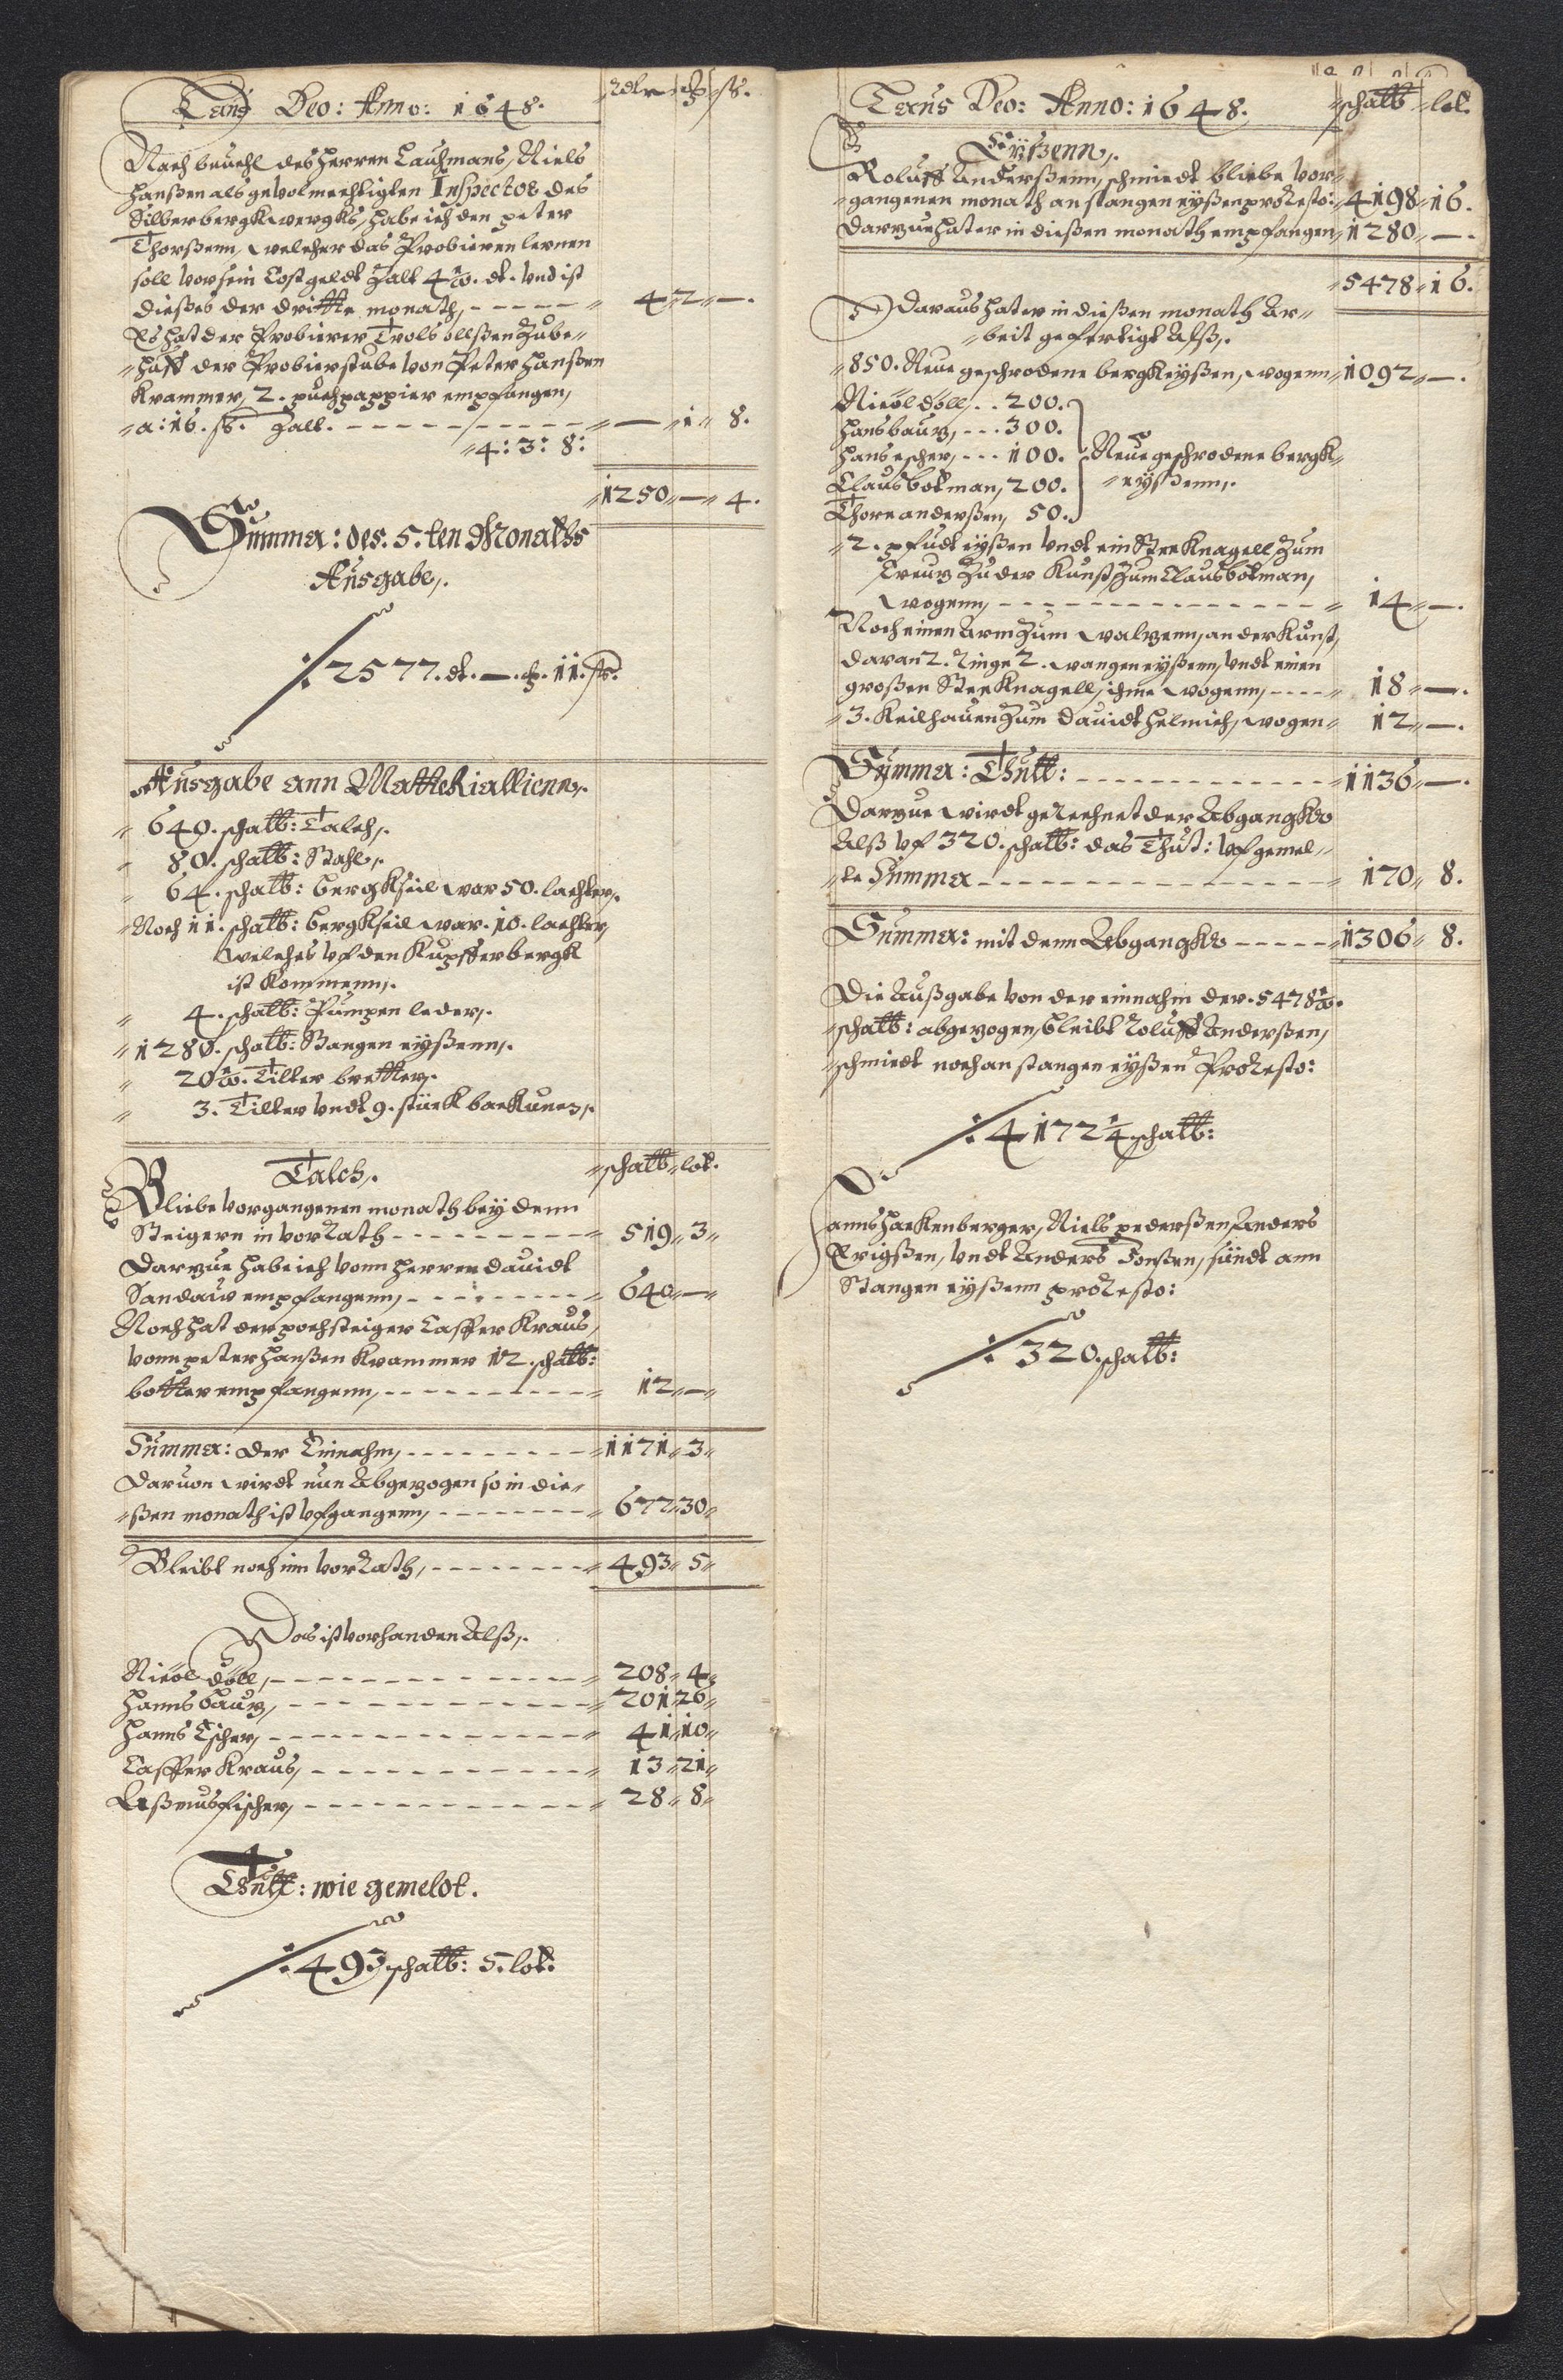 Laus Deo: Anno: 1648. Rdlr ß.
Nach beuehl des Herren Lauhmans, Niels
Hanßen als gevolmechtigten Inspector des
Silberbergkwergks, habe ich den peter
Thorßenn, welcher das Probieren lernen
soll vor sein Costgeldt Zalt 4½. dt. vnd ist
dießes der dritte monath, 4 2 —.
Es hat der Probierer Trols ollßen Zube-
huff der Probierstube von Peter Hanßen
Krammer, 2. puchpappier empfangen,
a: 16. ß. Zalt. — 1 8.
4: 3: 8:
1250 — 4.
Summa: des. 5.ten Monaths
Ausgabe,.
2577. dt. —. 11. ß.
Ausgabe ann Matterialienn,.
640. schalt: Talch,.
80. schalt: Stahl,.
64. schalt: bergkseil war 50. lachter,.
Noch 11. schalt: bergkseil war. 10. lachter,
welches vf den Kupfferbergk
ist Kommenn,.
4. schalt: Pumpen leder,.
1280. schalt: Stangen eyßenn,.
20½. Tilter bretter,.
3. Tilter vndt 9. stück
Talch,. schalt lot.
Bliebe vorgangenen monath bey denn
Steigern in vorRath 519 3
Darzue habe ich vonn Herren dauidt
Sandauw empfangenn, 640 —
Noch hat der pochsteiger Casper Kraus,
vonn peter Hanßen Krammer 12. schalt:
botter empfangenn, 12 —
Summa: der Einnahm, 1171 3
Daruon wirdt nun Abgezogen so in die-
ßen monath ist vfgangenn, 677 30
Bleibt noch im vorRath, 493 5
Das ist vorhanden Alß,.
Nicol döll, 208 4
Hanns baur, 201 26
Hanns Escher, 41 10
Casper Kraus, 13 21
Aßmus fischer, 28 8
Thutt: wie gemeldt.
493 schalt: 5. lot:
Laus Deo: Anno: 1648. schalt lot.
Eyßenn,.
Roluff Anderßenn, schmiedt bliebe vor-
gangenen monath an stangen eyßen proResto: 4198 16.
Darzue hat er in dießen monath empfangen, 1280 —.
5478 16.
Daraus hat er in dießen monath Ar-
beit gefertigt Alß,.
850. Neue geschrodene bergkeyßen, wogenn 1092 —.
Nicol döll, . . 200.
Hans baur, - - - 300.
Hans escher, - - - 100. Neue geschrodene bergk-
Claus botman, 200. eyßenn,.
Thore anderßen, 50.
2. pfudteyßen vndt ein Steeknagell Zum
Creuz Zu der Kunst Zum Claus botman,
wogenn, 14 —.
Noch einen Arm Zum walzenn, an der Kunst,
daran 2. Ringe 2. wangeneyßenn, vndt einen
großen Steeknagell, wogenn, 18 —.
3. Keilhauen Zum dauidt Helmich, wogen 12 —.
Summa: Thutt: 1136 —.
Darzue wirdt geRechnet der Abgangk
Alß vf 320. schalt: das Thut: vf gemel-
te Summa 170 8.
Summa: mit denn Abgangk 1306 8.
Die Außgabe von der einnahm der. 5478½.
schalt: abgezogen, bleibt Roluff Anderßen,
schmiedt noch an stangen eyßen ProResto:
4172¼ schalt:
Hanns Hackenberger, Niels pederßen, Anders
Erigßen, vndt Anders Jonßen, sindt ann
Stangen eyßenn proResto:
320. schalt: